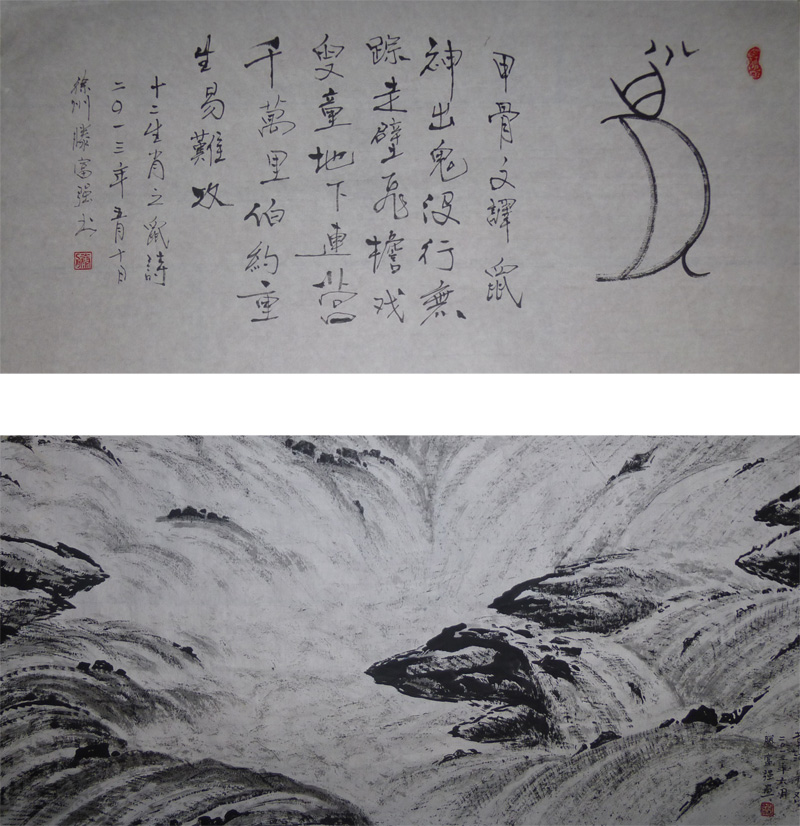 甲骨文譯鼠
神出鬼没行無
踪走壁飛檐戏
叟童地下連营
千萬里伯約重
生易難攻
十二生肖之鼠詩
二〇一三年五月十日
徐州滕富强书
滕富强画